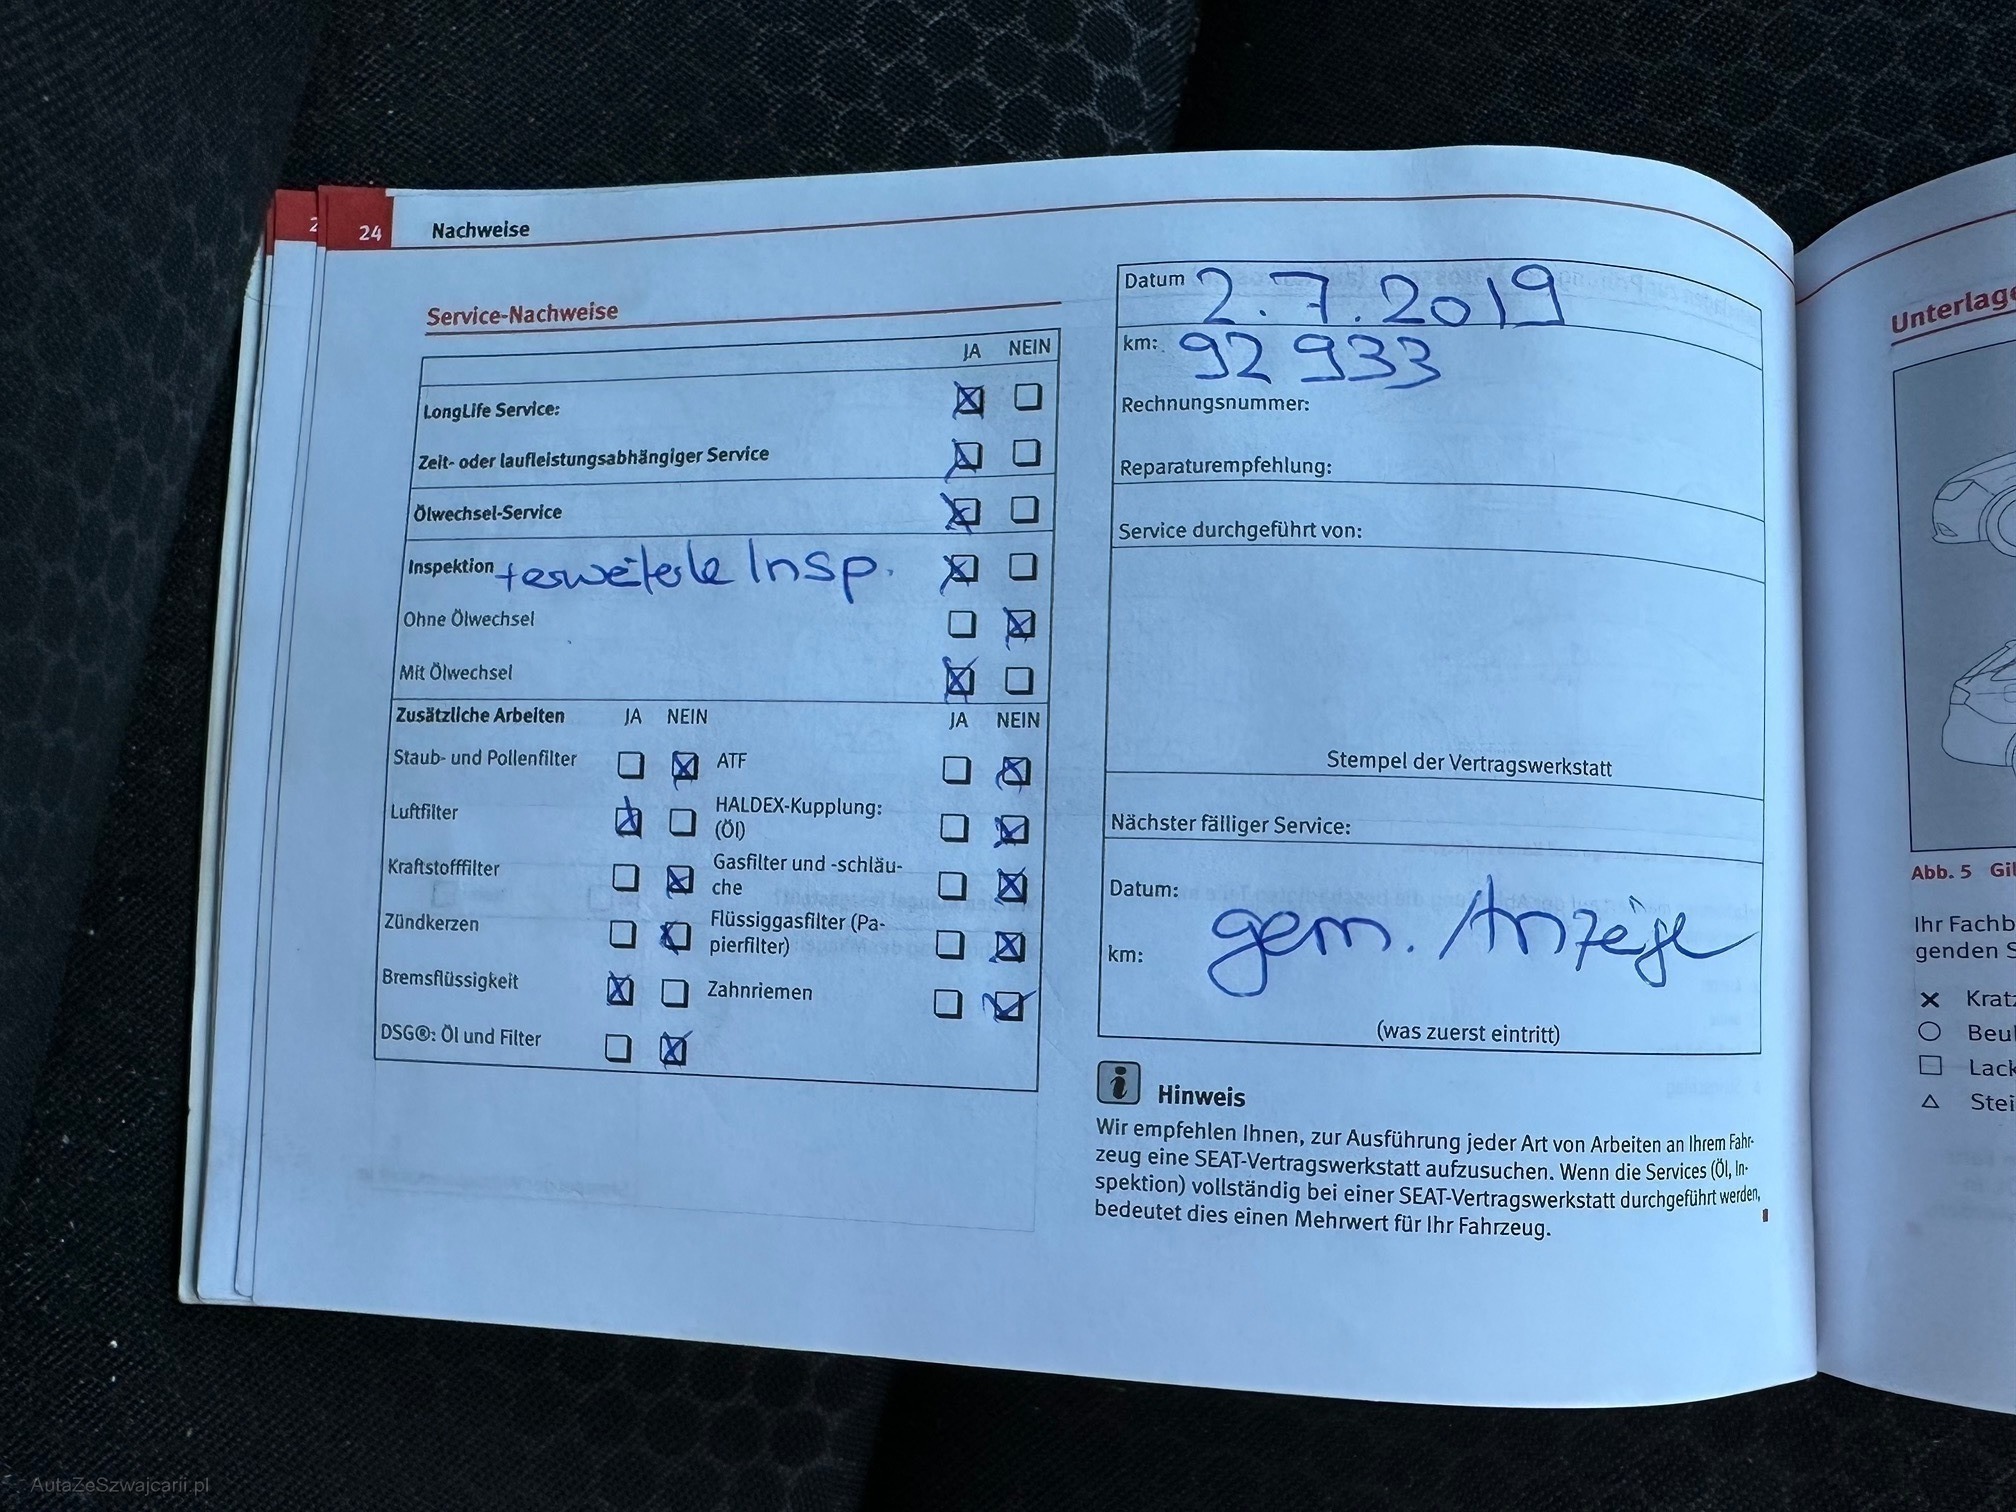 24
Nachweise
Service-Nachweise
JA NEIN
LongLife Service:
Zeit- oder laufleistungsabhängiger Service
Ölwechsel-Service
Inspektion + erweiterte Insp.
Ohne Ölwechsel
Mit Ölwechsel
Zusätzliche Arbeiten JA NEIN JA NEIN
Staub- und Pollenfilter ATF
Luftfilter HALDEX-Kupplung:
(Öl)
Kraftstofffilter Gasfilter und -schläu-
che
Zündkerzen Flüssiggasfilter (Pa-
pierfilter)
Bremsflüssigkeit Zahnriemen
DSG®: Öl und Filter
Datum 2.7.2019
km: 92 933
Rechnungsnummer:
Reparaturempfehlung:
Service durchgeführt von:
Stempel der Vertragswerkstatt
Nächster fälliger Service:
Datum:
gem. Anzeige
km:
(was zuerst eintritt)
i Hinweis
Wir empfehlen Ihnen, zur Ausführung jeder Art von Arbeiten an Ihrem Fahr-
zeug eine SEAT-Vertragswerkstatt aufzusuchen. Wenn die Services (Öl, In-
spektion) vollständig bei einer SEAT-Vertragswerkstatt durchgeführt werden,
bedeutet dies einen Mehrwert für Ihr Fahrzeug.
Unterlage
Abb. 5 Gil
Ihr Fachb
genden S
Kratz
Beul
Lack
Stei
AutaZeSzwajcarii.pl